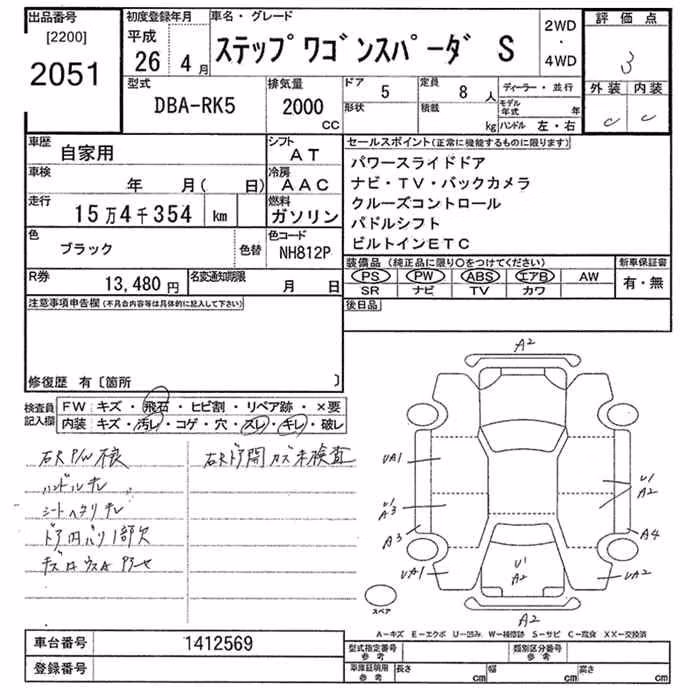 出品番号 初度登録年月 車名・グレード 評価点
[2200] 平成 2WD
2051 26年 4月 ステップワゴンスパーダ S ・ 3
4WD
型式 排気量 ドア 5 定員 8人 ディーラー・並行 外装 内装
DBA-RK5 2000 CC 形状 積載 kg モデル年式 年 C C
ハンドル 左・右
車歴 自家用 シフト AT セールスポイント(正常に機能するものに限ります)
車検 年 月( 日) 冷房 AAC パワースライドドア
走行 15万4千354 km 燃料 ガソリン ナビ・TV・バックカメラ
クルーズコントロール
色 ブラック 色替 色コード NH812P パドルシフト
ビルトインETC
R券 13,480円 名変通知期限 月 日 装備品(純正品に限り○をつけてください) 新車保証書
PS PW ABS エアB AW 有・無
SR ナビ TV カワ
注意事項申告欄(不具合内容等は具体的に記入して下さい) 後日品
修復歴 有〔箇所 〕
検査員 FW キズ・飛石・ヒビ割・リペア跡・×要
記入欄 内装 キズ・汚レ・コゲ・穴・スレ・キレ・破レ
右R P/W 不良 右Rドア開カズ未検査
ハンドルキレ
シートヘタリキレ
ドア内バリ1部欠
A2
UA1
U1
A3
A3
UA1
U1
A2
A4
UA2
U1
A2
A2
スペア
A-キズ E-エクボ U-凹み W-補修跡 S-サビ C-腐食 XX-交換済
車台番号 1412569 型式指定番号 参考 類別区分番号 参考
登録番号 車庫証明用 参考 長さ cm 幅 cm 高さ cm